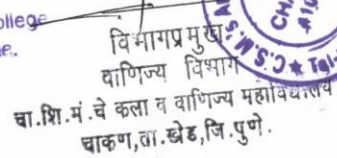 ollege
e.
विभागप्रमुख
वाणिज्य विभाग
चा.शि.मं.चे कला व वाणिज्य महाविद्यालय
चाकण,ता.खेड,जि.पुणे.
C.S.M.'s A